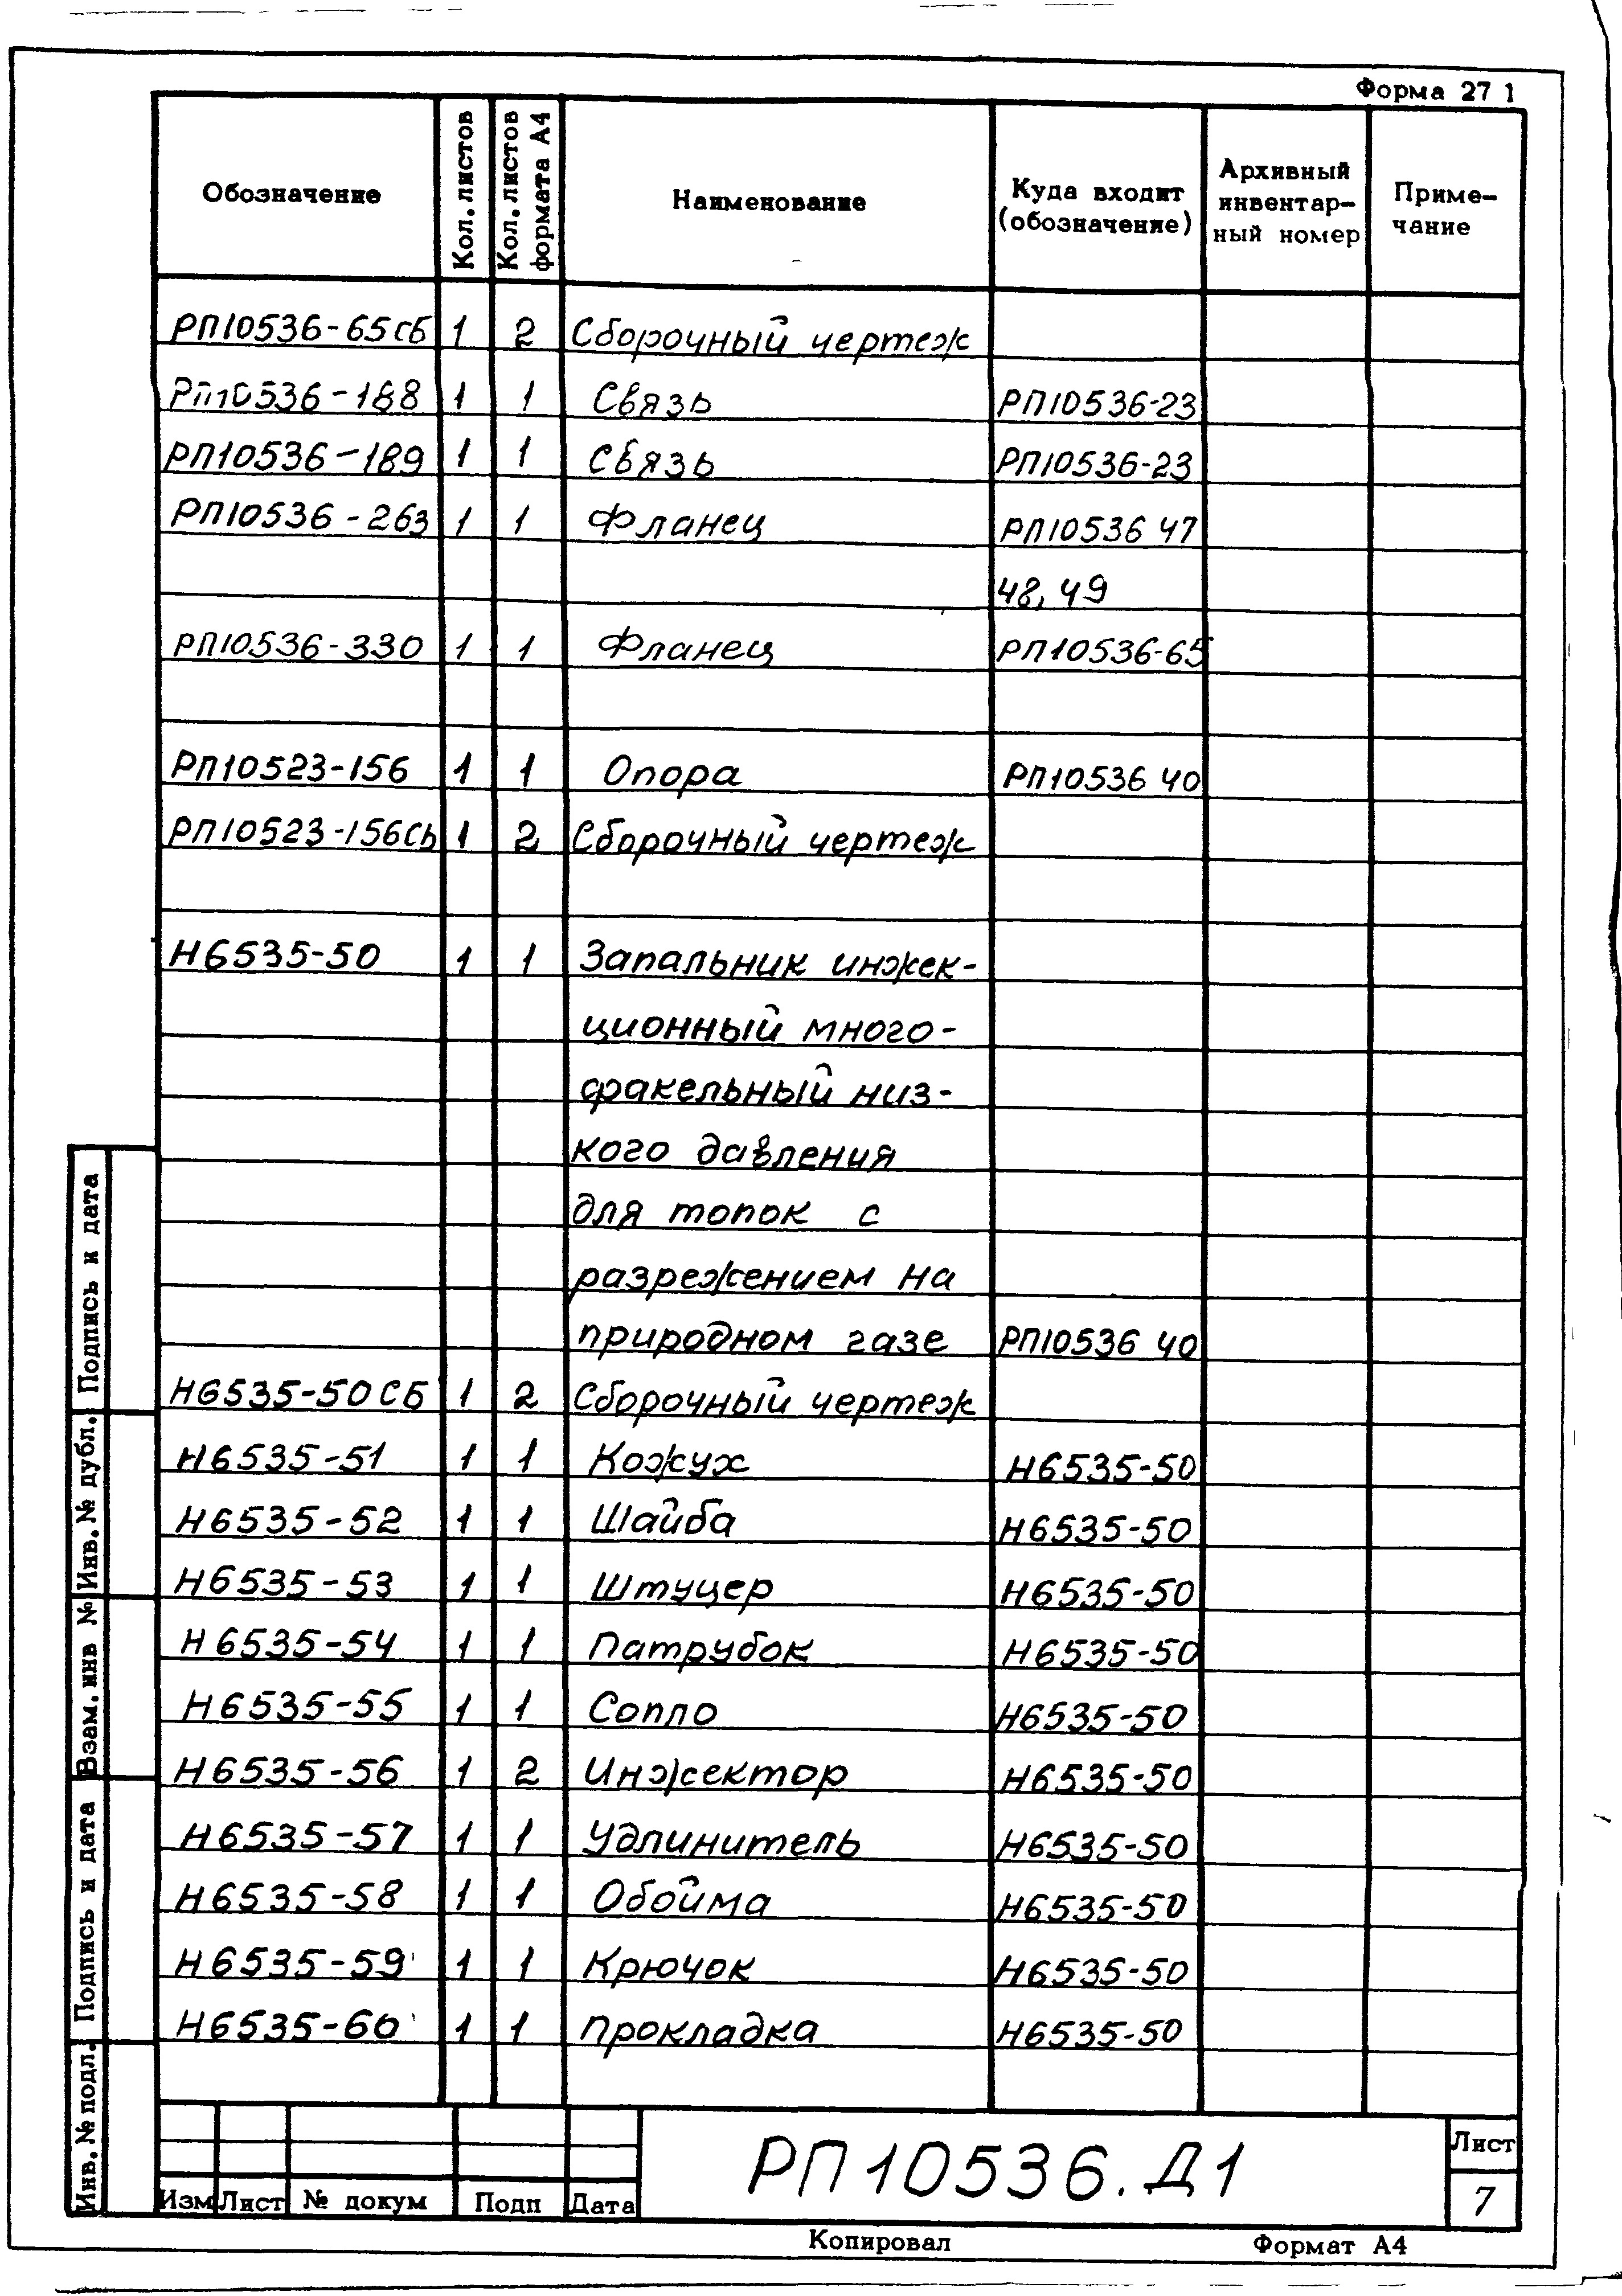 Форма 27 1
Обозначение Кол. листов Кол. листов формата А4 Наименование Куда входит (обозначение) Архивный инвентар- ный номер Приме- чание
РП10536-65СБ 1 2 Сборочный чертеж
РП10536-188 1 1 Связь РП10536-23
РП10536-189 1 1 Связь РП10536-23
РП10536-263 1 1 Фланец РП10536 47
48, 49
РП10536-330 1 1 Фланец РП10536-65
РП10523-156 1 1 Опора РП10536 40
РП10523-156СБ 1 2 Сборочный чертеж
Н6535-50 1 1 Запальник инжек-
ционный много-
факельный низ-
кого давления
для топок с
разрежением на
природном газе РП10536 40
Н6535-50СБ 1 2 Сборочный чертеж
Н6535-51 1 1 Кожух Н6535-50
Н6535-52 1 1 Шайба Н6535-50
Н6535-53 1 1 Штуцер Н6535-50
Н6535-54 1 1 Патрубок Н6535-50
Н6535-55 1 1 Сопло Н6535-50
Н6535-56 1 2 Инжектор Н6535-50
Н6535-57 1 1 Удлинитель Н6535-50
Н6535-58 1 1 Обойма Н6535-50
Н6535-59 1 1 Крючок Н6535-50
Н6535-60 1 1 Прокладка Н6535-50
Инв. № подл. Подпись и дата Взам. инв № Инв. № дубл. Подпись и дата
Изм Лист № докум Подп Дата
РП10536.Д1
Лист
7
Копировал Формат А4